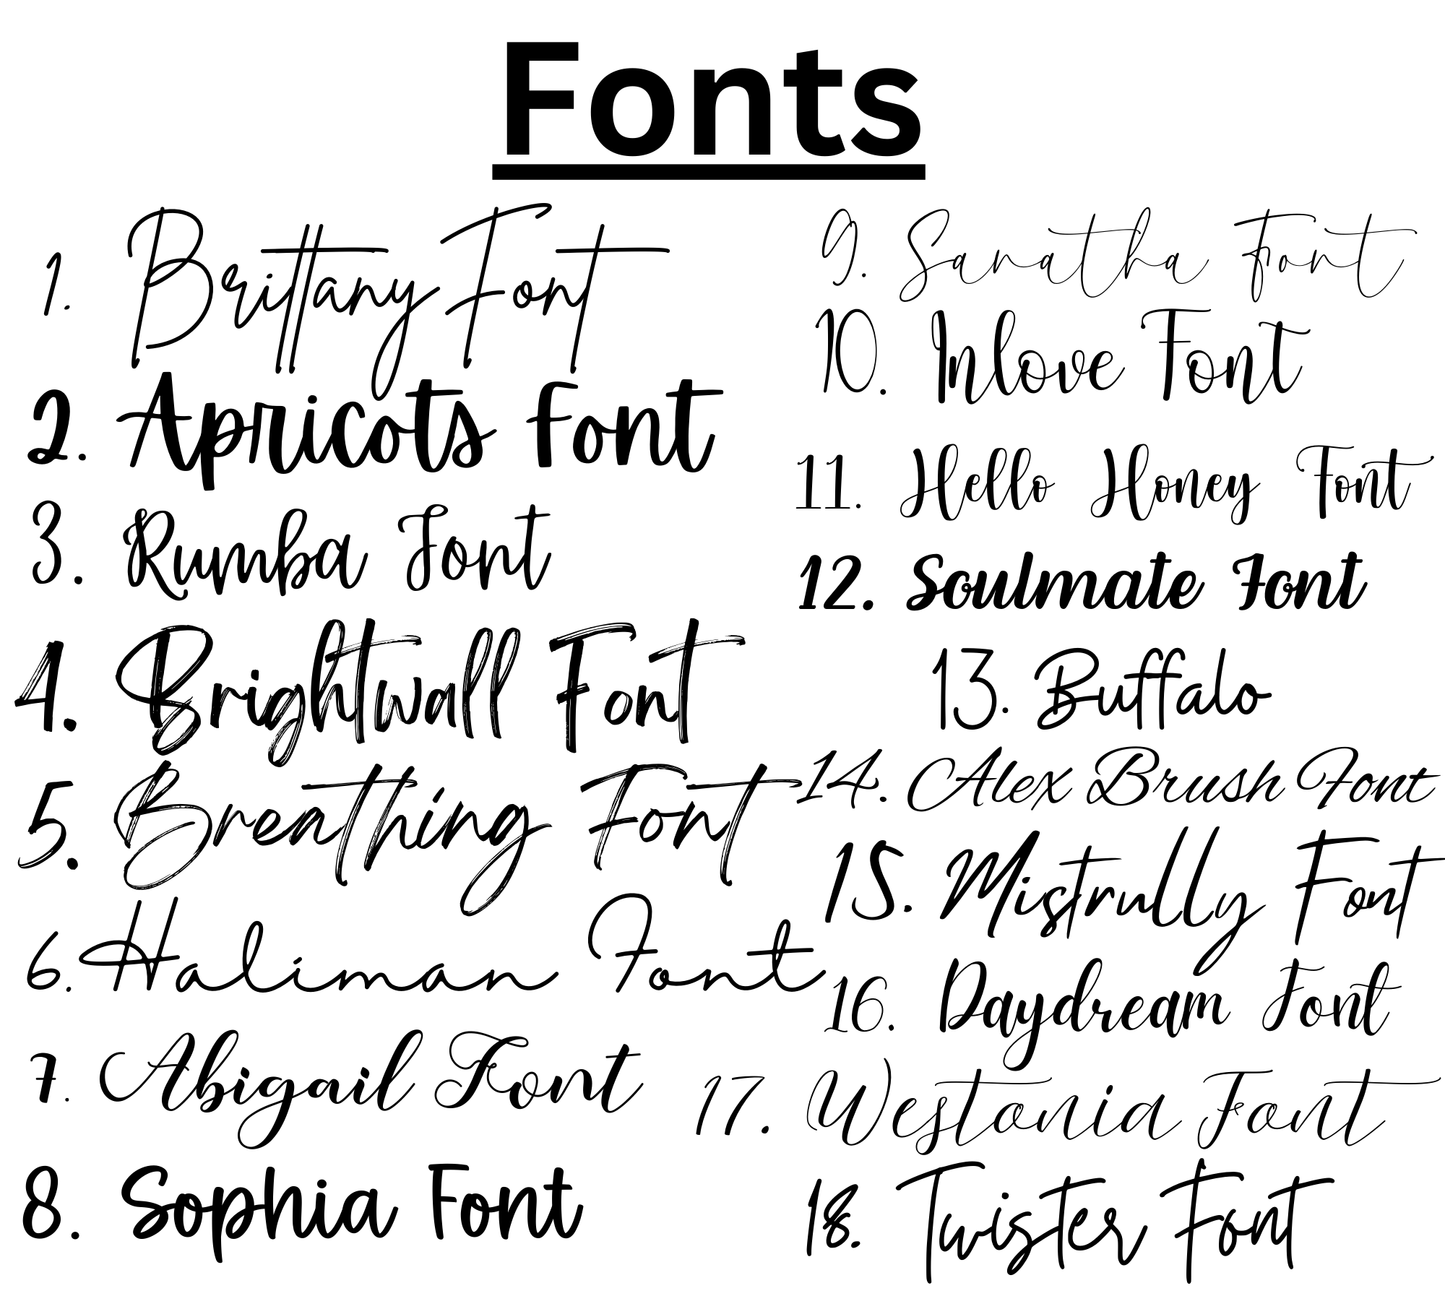 Fonts
1. Brittany Font
2. Apricots Font
3. Rumba Font
4. Brightwall Font
5. Breathing Font
6. Haliman Font
7. Abigail Font
8. Sophia Font
9. Sanatha Font
10. Inlove Font
11. Hello Honey Font
12. Soulmate Font
13. Buffalo
14. Alex Brush Font
15. Mistrully Font
16. Daydream Font
17. Westonia Font
18. Twister Font